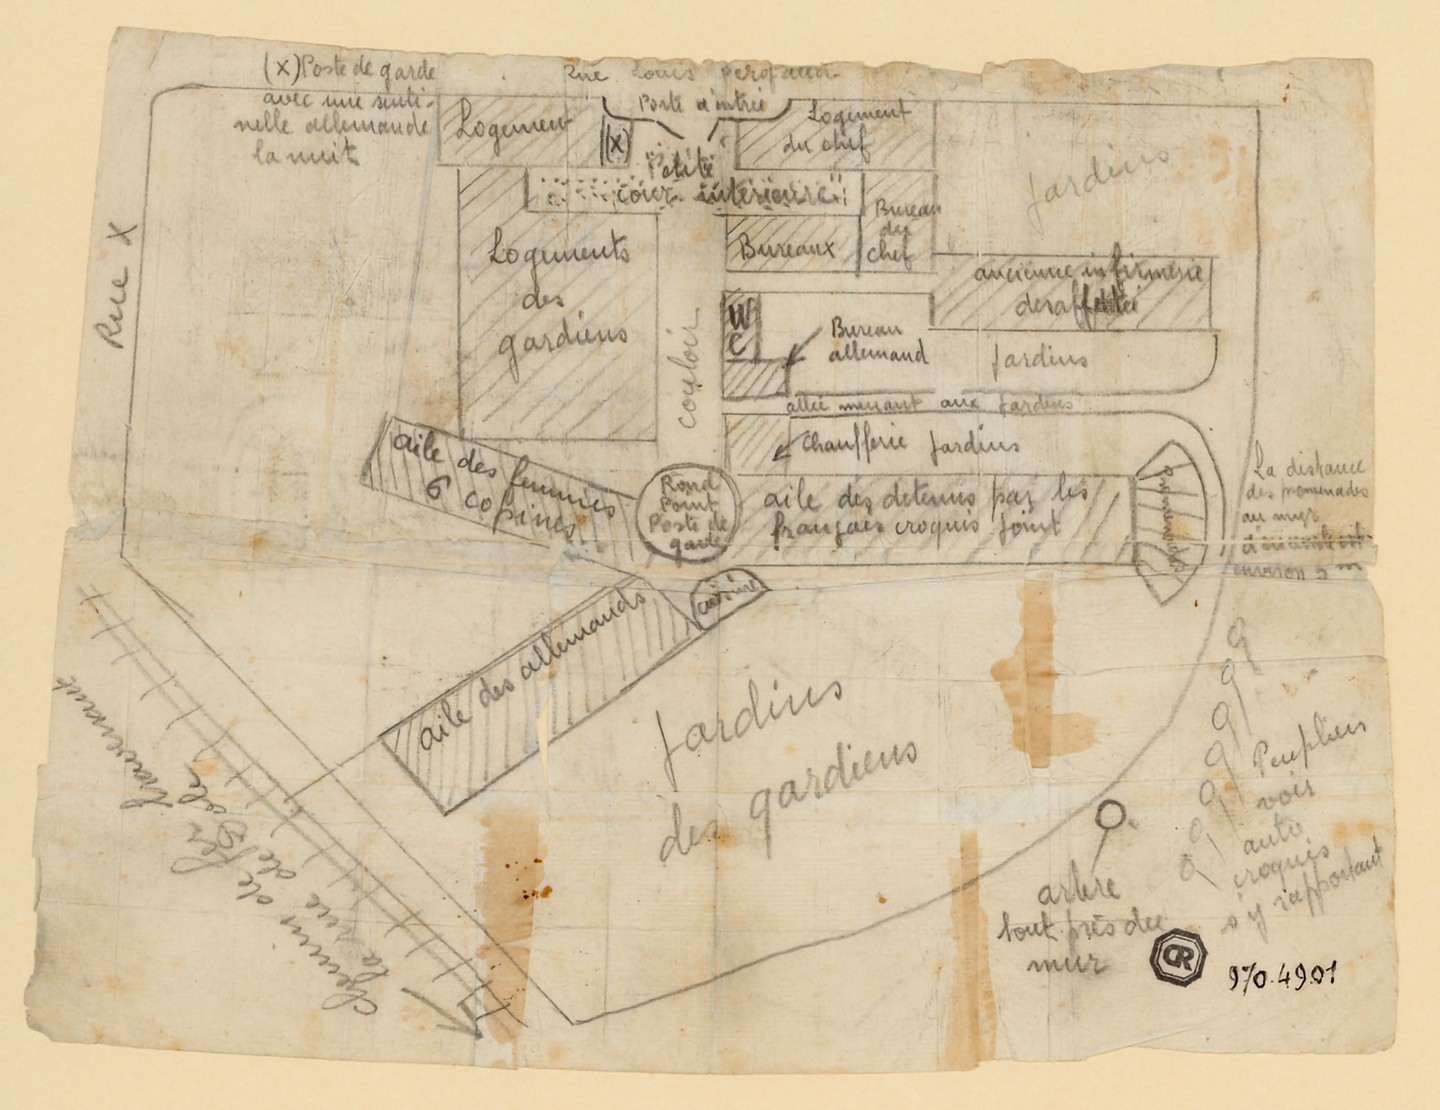 (x) Poste de garde
avec une senti-
nelle allemande
la nuit
Rue Louis Pergaud
Porte d'entrée
Logement
(x)
Logement
du chef
Petite
cour intérieure
Jardins
Rue X
Logements
des
gardiens
couloir
Bureaux
Bureau
du
chef
ancienne infirmerie
desaffectée
W
C
Bureau
allemand
Jardins
allée menant aux Jardins
Chaufferie
Jardins
aile des femmes
6 copines
Rond
Point
Poste de
garde
aile des detenus par les
français croquis joint
promenades
La distance
des promenades
au mur
est
environ 5 m
cuisine
aile des allemands
Jardins
des gardiens
chemin de fer traversant
la rue de Dole
Peupliers
vois
autre
croquis
s'y rapportant
arbre
tout près du
mur
CR
970.49.01